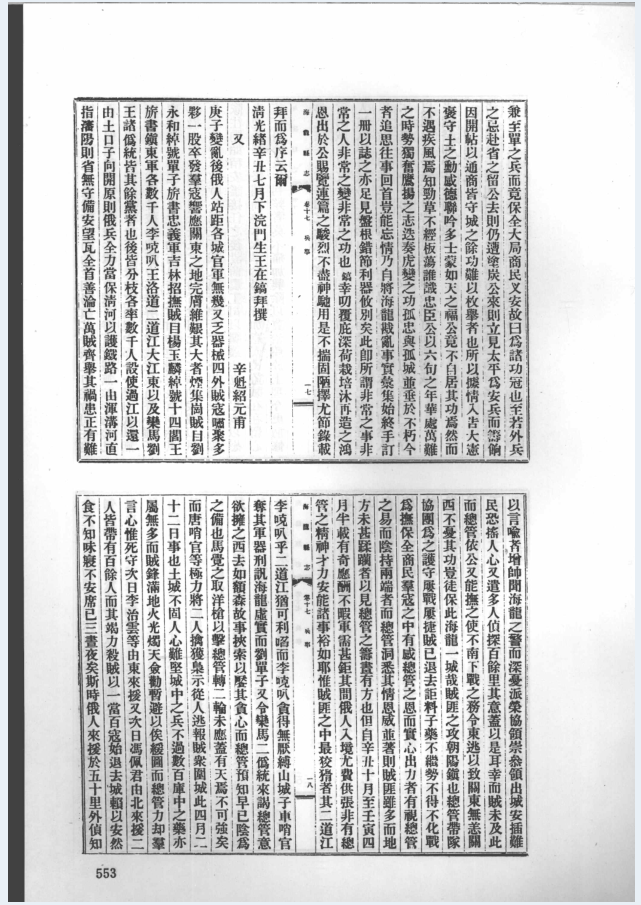 兼至單之兵而竟保全大局商民又安故曰爲諸功冠也至若外兵
之忌赴省之留公去則仍遭塗炭公來則立見太平爲安兵而籌餉
因開帖以通商皆守城之餘功難以枚舉者也所以據情入吿大憲
褒守土之勳威德聯吟多士蒙如天之福公竟不自居其功焉然而
不遇疾風焉知勁草不經板蕩誰識忠臣公以六旬之年華處萬難
之時勢獨奮鷹揚之志迭奏虎變之功孤忠與孤城並垂於不朽今
者追思往事回首豈能忘情乃自將海龍戡亂事實彙集始終手訂
一册以誌之亦足見盤根錯節利器攸別矣此卽所謂非常之事非
常之人非常之變非常之功也鎬幸叨覆庇深荷栽培沐再造之鴻
恩出於公賜覽連篇之駿烈不盡神馳用是不揣固陋擇尤節錄載
海龍縣志 卷十七 兵學 一七
拜而爲序云爾
淸光緒辛丑七月下浣門生王在鎬拜撰
又 辛魁紹元甫
庚子變亂後俄人站距各城官軍無幾又乏器械四外賊寇嘯聚多
夥一股卒發羣寇響應關東之地完膚維艱其大者煙集崗賊目劉
永和綽號單子旂書忠義軍吉林招撫賊目楊玉麟綽號十四閻王
旂書鎭東軍各數千人李吱叭王洛道二道江大江東以及欒馬劉
王諸僞統皆其餘黨者也後皆分枝各率數千人設使過江以還一
由土日子向開原則俄兵全力當保淸河以護鐵路一由渾溝河直
指瀋陽則省無守備安望瓦全首善淪亡萬賊齊擧其禍患正有難
以言喩者增帥聞海龍之警而深憂派榮協領崇叅領出城安插難
民恐搖人心又遣多人偵探百餘里其意蓋以是耳幸而賊未及此
而總管依公又能撫之使不南下戰之務令東逃以致關東無恙關
西不憂其功豈徒保此海龍一城哉賊匪之攻朝陽鎭也總管帶隊
協團爲之護守屢戰屢捷賊已退去詎料子藥不繼勢不得不化戰
爲撫保全商民羣寇之中有感總管之恩而實心出力者有視總管
之易而陰持兩端者而總管洞悉其情恩威並著則賊匪雖多而地
方未甚蹂躪者以見總管之籌畫有方也但自辛丑十月至壬寅四
月半載有奇應酬不暇軍需甚鉅其間俄人入境尤費供張非有總
管之精神才力安能諸事裕如耶惟賊匪之中最狡猾者其二道江
海龍縣志 卷十七 兵學 一八
李吱叭乎二道江猶可利啗而李吱叭貪得無厭縛山城子車哨官
奪其軍器刑訊海龍虛實而劉單子又令欒馬二僞統來謁總管意
欲擁之西去如額森故事挾索以壓其貪心而總管預知早已陰爲
之備也馬覺之取洋槍以擊總管轉二輪未應蓋有天焉不可強矣
而唐哨官等極力將二人擒獲梟示從人逃報賊衆圍城此四月二
十二日事也土城不固人心難堅城中之兵不過數百庫中之藥亦
屬無多而賊鋒滿地火光燭天僉勸暫避以俟緩圖而總管力却羣
言心惟死守次日李治雲等由東來援又次日馮佩君由北來援二
人皆帶有百餘人而其竭力殺賊以一當百寇始退去城賴以安然
食不知味寢不安席已三晝夜矣斯時俄人來援於五十里外偵知
553